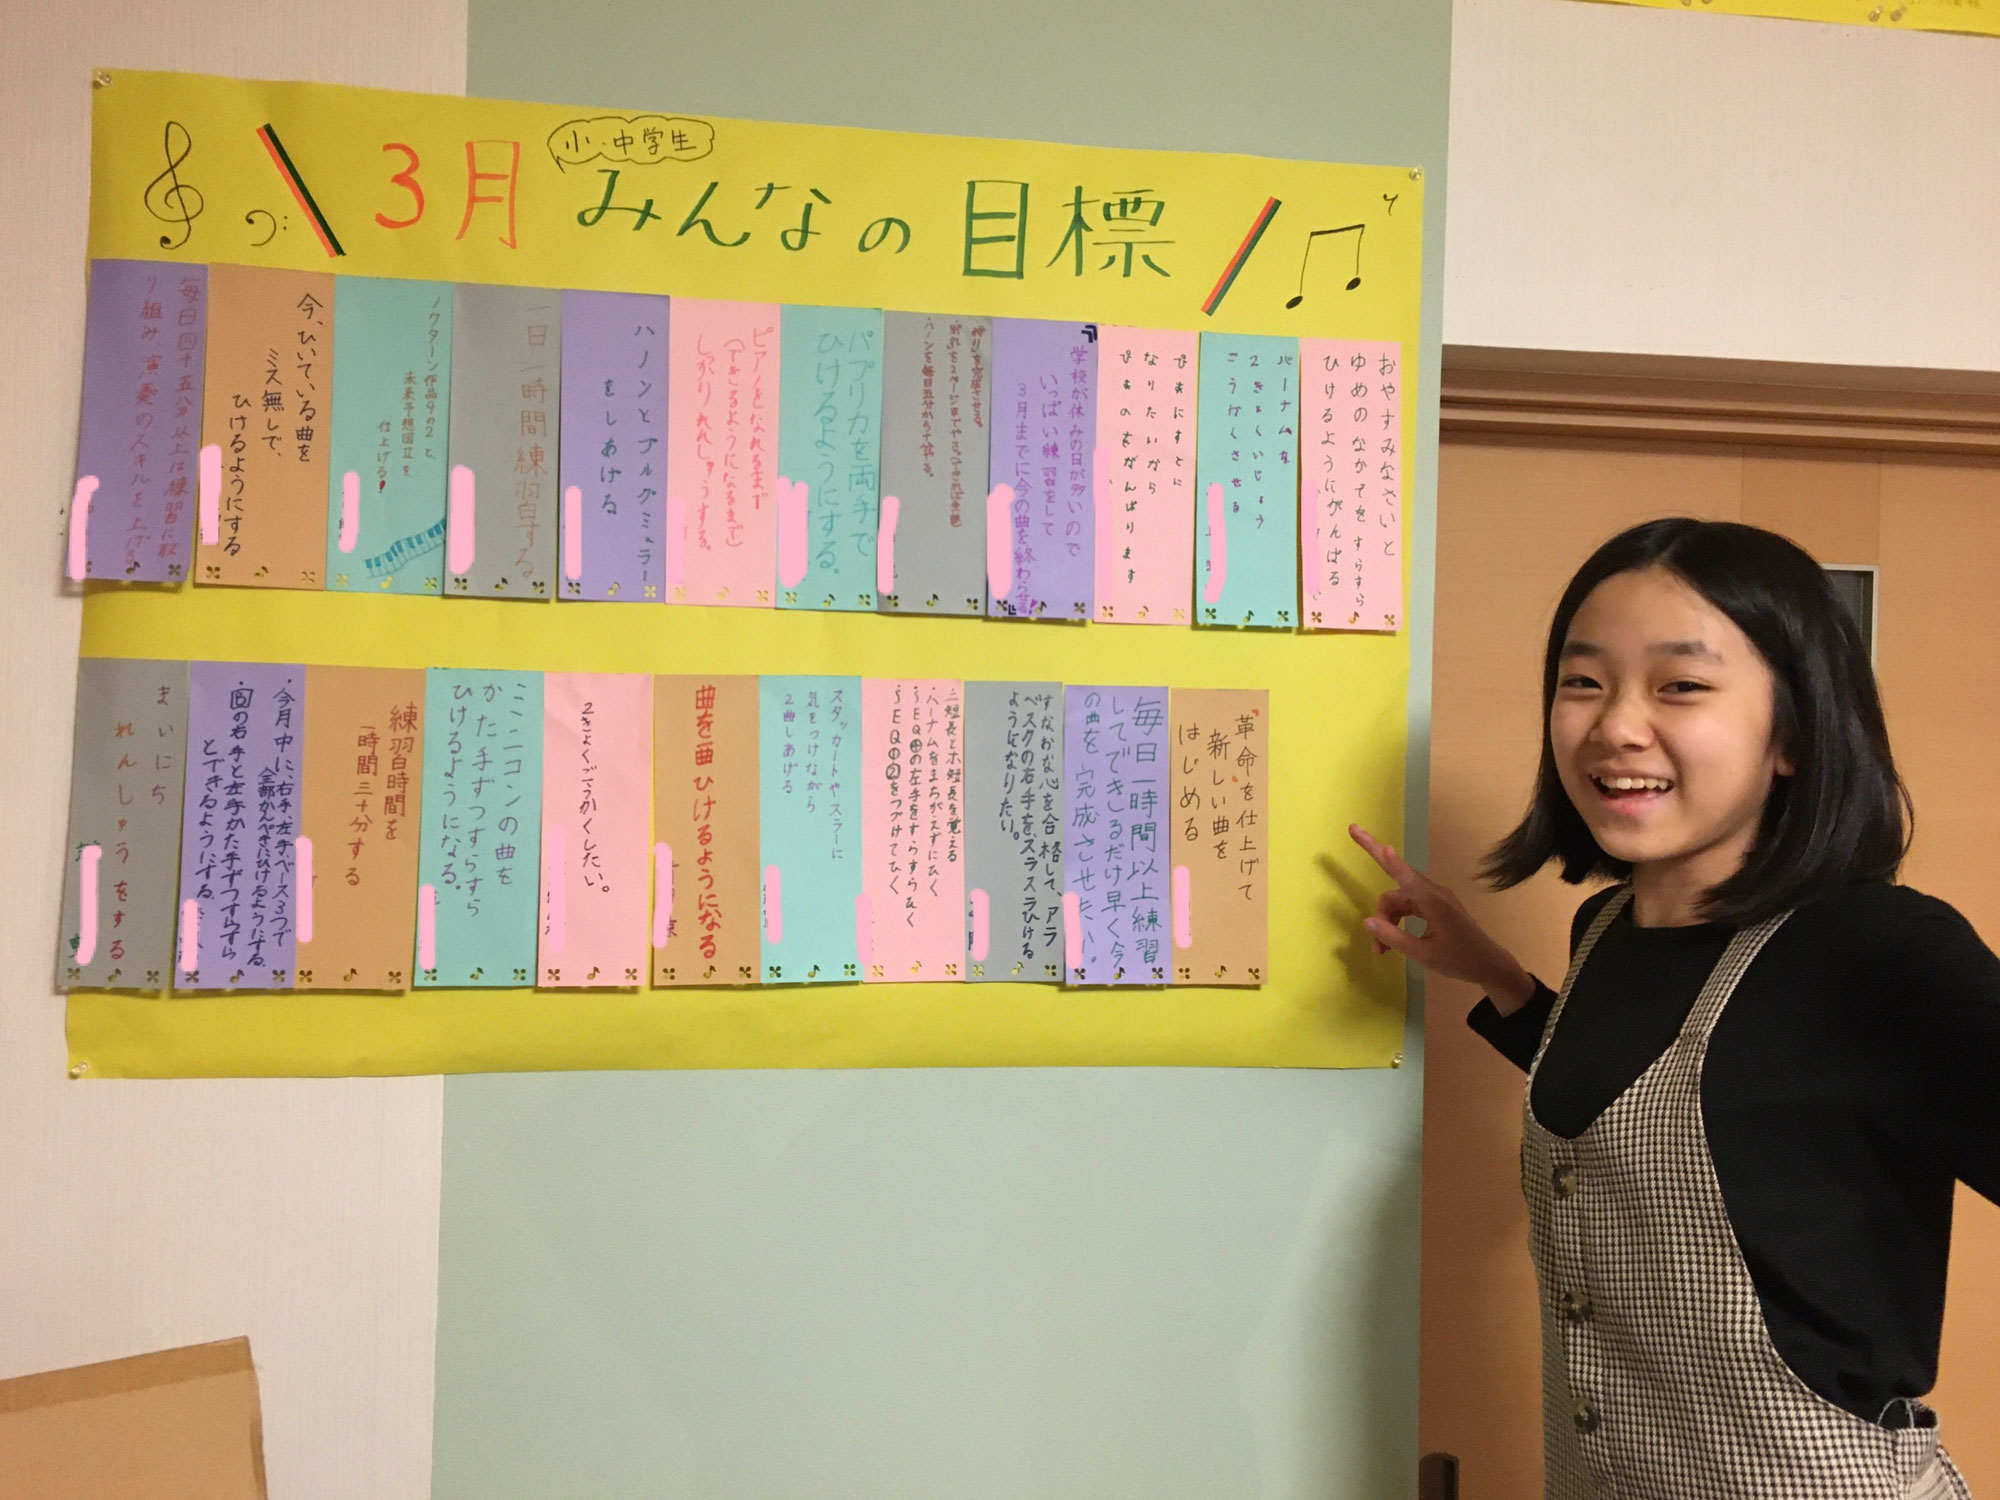 小・中学生
3月 みんなの目標
おやすみなさいと
ゆめのなかてをすらすら
ひけるようにがんばる
バーナムを
2きょくいじょう
ごうかくさせる
ぴあにすとに
なりたいから
ぴあのをがんばります
学校が休みの日が多いので
いっぱい練習をして
3月までに今の曲を終わらせる
ハノンを毎日五分から十分する。
パプリカを両手で
ひけるようにする。
ピアノをなれるまで
(できるようになるまで)
しっかりれんしゅうする。
ハノンとブルグミュラー
をしあげる
一日一時間練習する
ノクターン作品9の2と、
未来予想図Ⅱを
仕上げる!
今、ひいている曲を
ミス無しで、
ひけるようにする
毎日四十五分以上は練習に取
り組み演奏のスキルを上げる
『革命』を仕上げて
新しい曲を
はじめる
毎日一時間以上練習
してできるだけ早く今
の曲を完成させたい。
すなおな心を合格して、アラ
ベスクの右手をスラスラひける
ようになりたい。
ニ短長とホ短長を覚える
・バーナムをまちがえずにひく
・SEQ⊞の左手をすらすらひく
・SEQ①の②をつづけてひく
スタッカートやスラーに
気をつけながら
2曲しあげる
曲を一曲ひけるようになる
2きょくごうかくしたい。
ミニコンの曲を
かた手ずつすらすら
ひけるようになる。
練習時間を
一時間三十分する
・今月中に、右手、左手、ベース3つで
全部かんぺきにひけるようにする。
・回の右手と左手かた手ずつすらすら
とできるようにする。
まいにち
れんしゅうをする